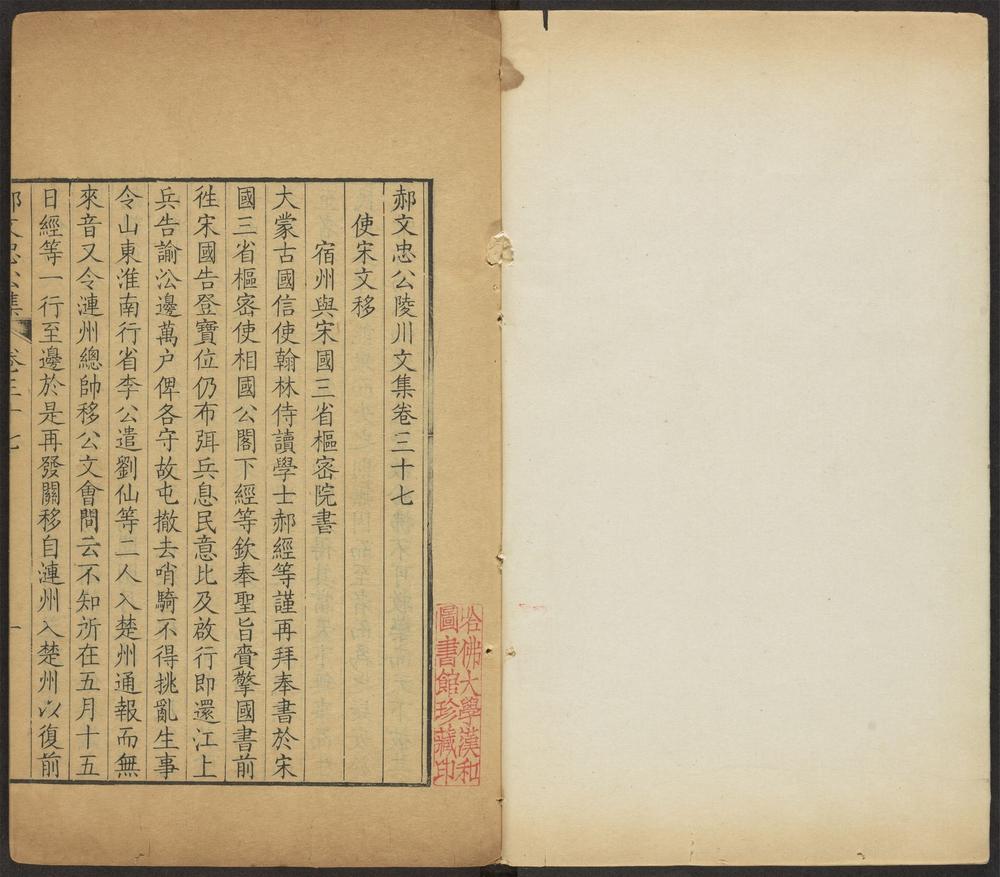 郝文忠公陵川文集卷三十七
使宋文移
宿州與宋國三省樞密院書
大蒙古國信使翰林侍讀學士郝經等謹再拜奉書於宋
國三省樞密使相國公閣下經等欽奉聖旨賫擎國書前
徃宋國告登寶位仍布弭兵息民意比及啟行即還江上
兵告諭沿邊萬户俾各守故屯撤去哨騎不得挑亂生事
令山東淮南行省李公遣劉仙等二人入楚州通報而無
來音又令漣州總帥移公文會問云不知所在五月十五
日經等一行至邊於是再發關移自漣州入楚州以復前
郝文忠公集 卷三十七 一
哈佛大學漢和
圖書館珍藏印